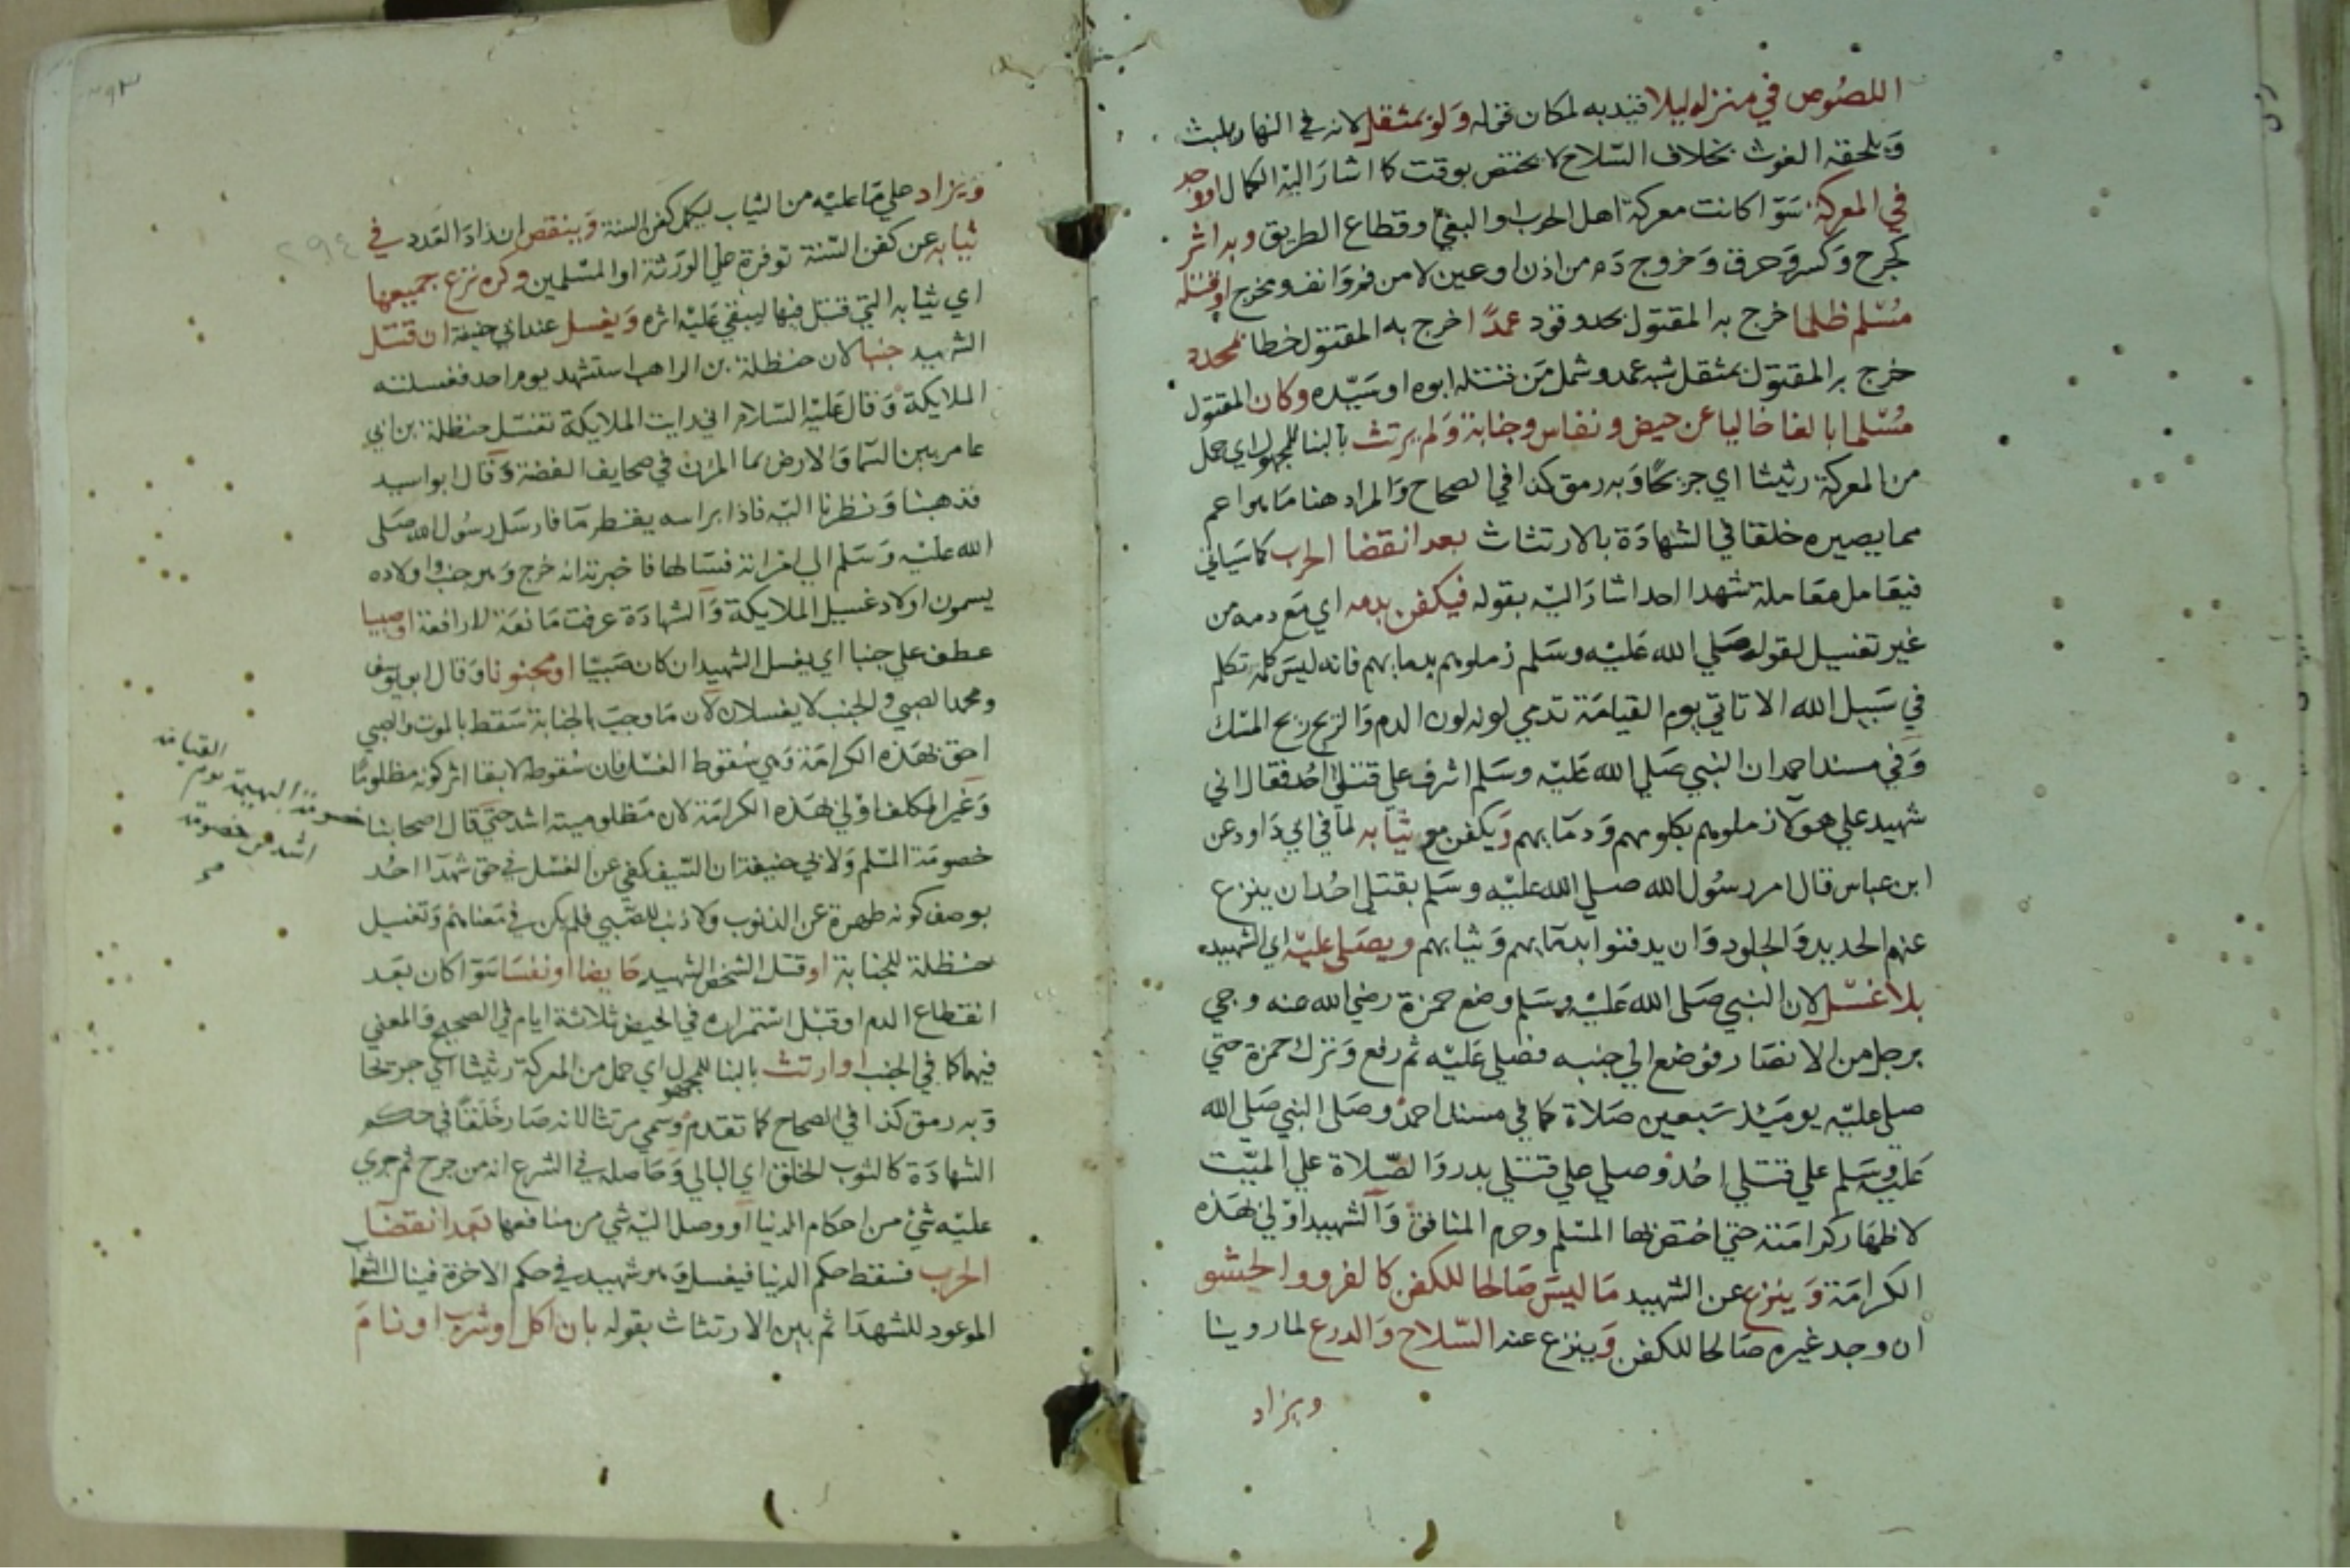 اللصوص في منزله ليلا قيد به لمكان قوله ولو بمثقل لانه في النهار يلبث
ويلحقه الغوث بخلاف السلاح لا يختص بوقت كما اشار اليه الكمال او وجد
في المعركة سوا كانت معركة اهل الحرب او البغي او قطاع الطريق وبه اثر
كجرح وكسر وحرق وخروج دم من اذن او عين لا من فم وانف ومخرج او قتله
مسلم ظلما خرج به المقتول بحد وقود عمدا خرج به المقتول خطا بمحدد
خرج به المقتول بمثقل شبه عمد وشمل من قتله ابوه او سيده وكان المقتول
مسلما بالغا خاليا عن حيض ونفاس وجنابة ولم يرتث بالبنا للمجهول اي حمل
من المعركة رثيثا اي جريحا وبه رمق كذا في الصحاح والمراد هنا ما هو اعم
مما يصيره خلقا في الشهادة بالارتثاث بعد انقضا الحرب كما سياتي
فيعامل معاملة شهدا احد اشار اليه بقوله فيكفن بدمه اي مع دمه من
غير تغسيل لقوله صلي الله عليه وسلم زملوهم بدمايهم فانه ليس كلمة تكلم
في سبيل الله الا تاتي يوم القيامة تدمي لونه لون الدم والريح ريح المسك
وفي مسند احمد ان النبي صلي الله عليه وسلم اشرف علي قتلي احد فقال اني
شهيد علي هولآ زملوهم بكلومهم ودمايهم ويكفن مع ثيابه لما في ابي داود عن
ابن عباس قال امر رسول الله صلي الله عليه وسلم بقتلي احد ان ينزع
عنهم الحديد والجلود وان يدفنوا بدمايهم وثيابهم ويصلي عليه اي الشهيد
بلا غسل لان النبي صلي الله عليه وسلم وضع حمزة رضي الله عنه وجي
برجل من الانصار فوضع الي جنبه فصلي عليه ثم رفع وترك حمزة حتي
صلي عليه يوميذ سبعين صلاة كما في مسند احمد وصلي النبي صلي الله
عليه وسلم علي قتلي احد وصلي علي قتلي بدر والصلاة علي الميت
لاظهار كرامته حتي اختص بها المسلم وحرم المنافق والشهيد اولي بهذه
الكرامة وينزع عن الشهيد ما ليس صالحا للكفن كالفرو والحشو
ان وجد غيره صالحا للكفن وينزع عنه السلاح والدرع لما روينا
ويزاد
٢٩٤
ويزاد علي ما عليه من الثياب ليكمل كفن السنة وينقص ان زاد العدد في
ثيابه عن كفن السنة توفرة علي الورثة او المسلمين وكره نزع جميعها
اي ثيابه التي قتل فيها ليبقي عليه اثره ويغسل عند ابي حنيفة ان قتل
الشهيد جنبا لان حنظلة بن الراهب استشهد يوم احد فغسلته
الملايكة وقال عليه السلام اني رايت الملايكة تغسل حنظلة بن ابي
عامر بين السما والارض بما المزن في صحايف الفضة وقال ابو اسيد
فذهبنا ونظرنا اليه فاذا براسه يقطر ما فارسل رسول الله صلي
الله عليه وسلم الي امراته فسالها فاخبرته انه خرج وهو جنب واولاده
يسمون اولاد غسيل الملايكة والشهادة عرفت مانعة لا رافعة او صبيا
عطف علي جنبا اي يغسل الشهيد ان كان صبيا او مجنونا وقال ابو يوسف
ومحمد الصبي والجنب لا يغسلان لان ما وجب بالجنابة سقط بالموت والصبي
احق بهذه الكرامة وهي سقوط الغسل فان سقوطه لابقا اثر كونه مظلوما
وغير المكلف اولي بهذه الكرامة لان مظلوميته اشد حتي قال اصحابنا
خصومة البهيمة يوم القيامة
اشد من خصومة
خصومة المسلم ولابي حنيفة ان السيف كفي عن الغسل في حق شهدا احد
بوصف كونه طهرة عن الذنوب ولا ذنب للصبي فلم يكن في معناهم وتغسيل
حنظلة للجنابة او قتل الشخص الشهيد حايضا او نفسا سوا كان بعد
انقطاع الدم او قبل استمراره في الحيض ثلاثة ايام في الصحيح والمعني
فيهما كما في الجنب او ارتث بالبنا للمجهول اي حمل من المعركة رثيثا اي جريحا
وبه رمق كذا في الصحاح كما تقدم وسمي مرتثا لانه صار خلقا في حكم
الشهادة كالثوب الخلق اي البالي وحاصله في الشرع انه من جرح ثم جري
عليه شي من احكام الدنيا او وصل اليه شي من منافعها بعد انقضا
الحرب فسقط حكم الدنيا فيغسل وهو شهيد في حكم الاخرة فينال الثواب
الموعود للشهدا ثم بين الارتثاث بقوله بان اكل او شرب او نام